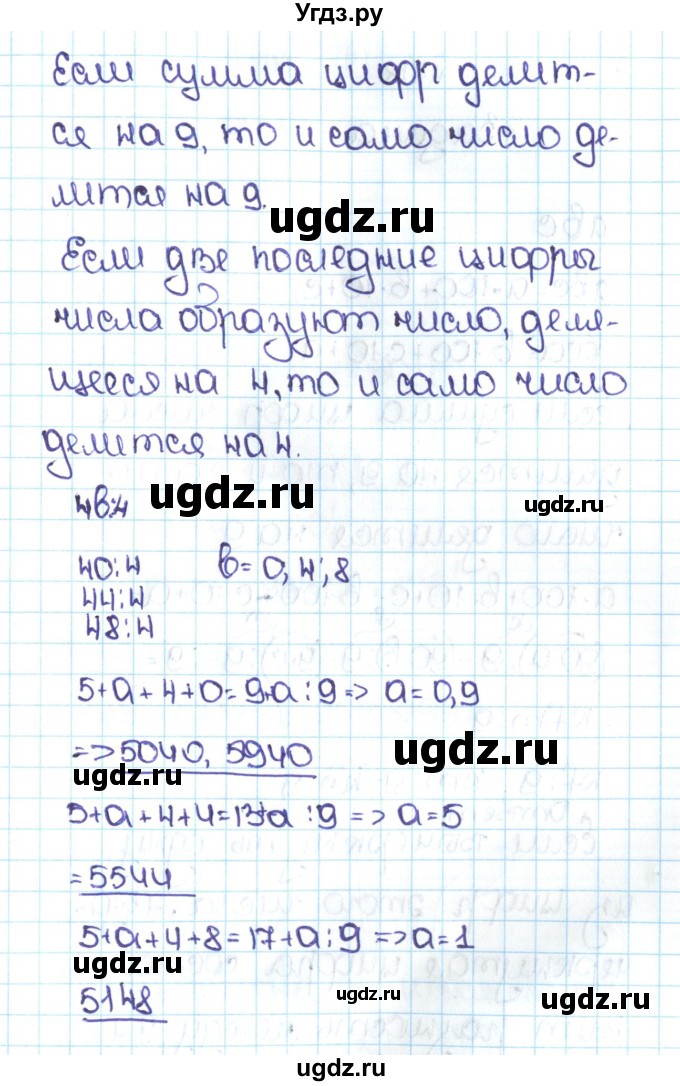 Угдз.ру
Если сумма цифр делит-
ся на 9, то и само число де-
лится на 9.
ugdz.ru
Если две последние цифры
числа образуют число, деля-
щееся на 4, то и само число
делится на 4.
ugdz.ru
ugdz.ru
4в:4
40:4 в=0, 4, 8
44:4
48:4
5+а+4+0=9+а:9=> а=0,9
ugdz.ru
=>5040, 5940
ugdz.ru
5+а+4+4=13+а:9=>а=5
=5544
5+а+4+8=17+а:9=>а=1
ugdz.ru
5148
ugdz.ru
ugdz.ru
ugdz.ru